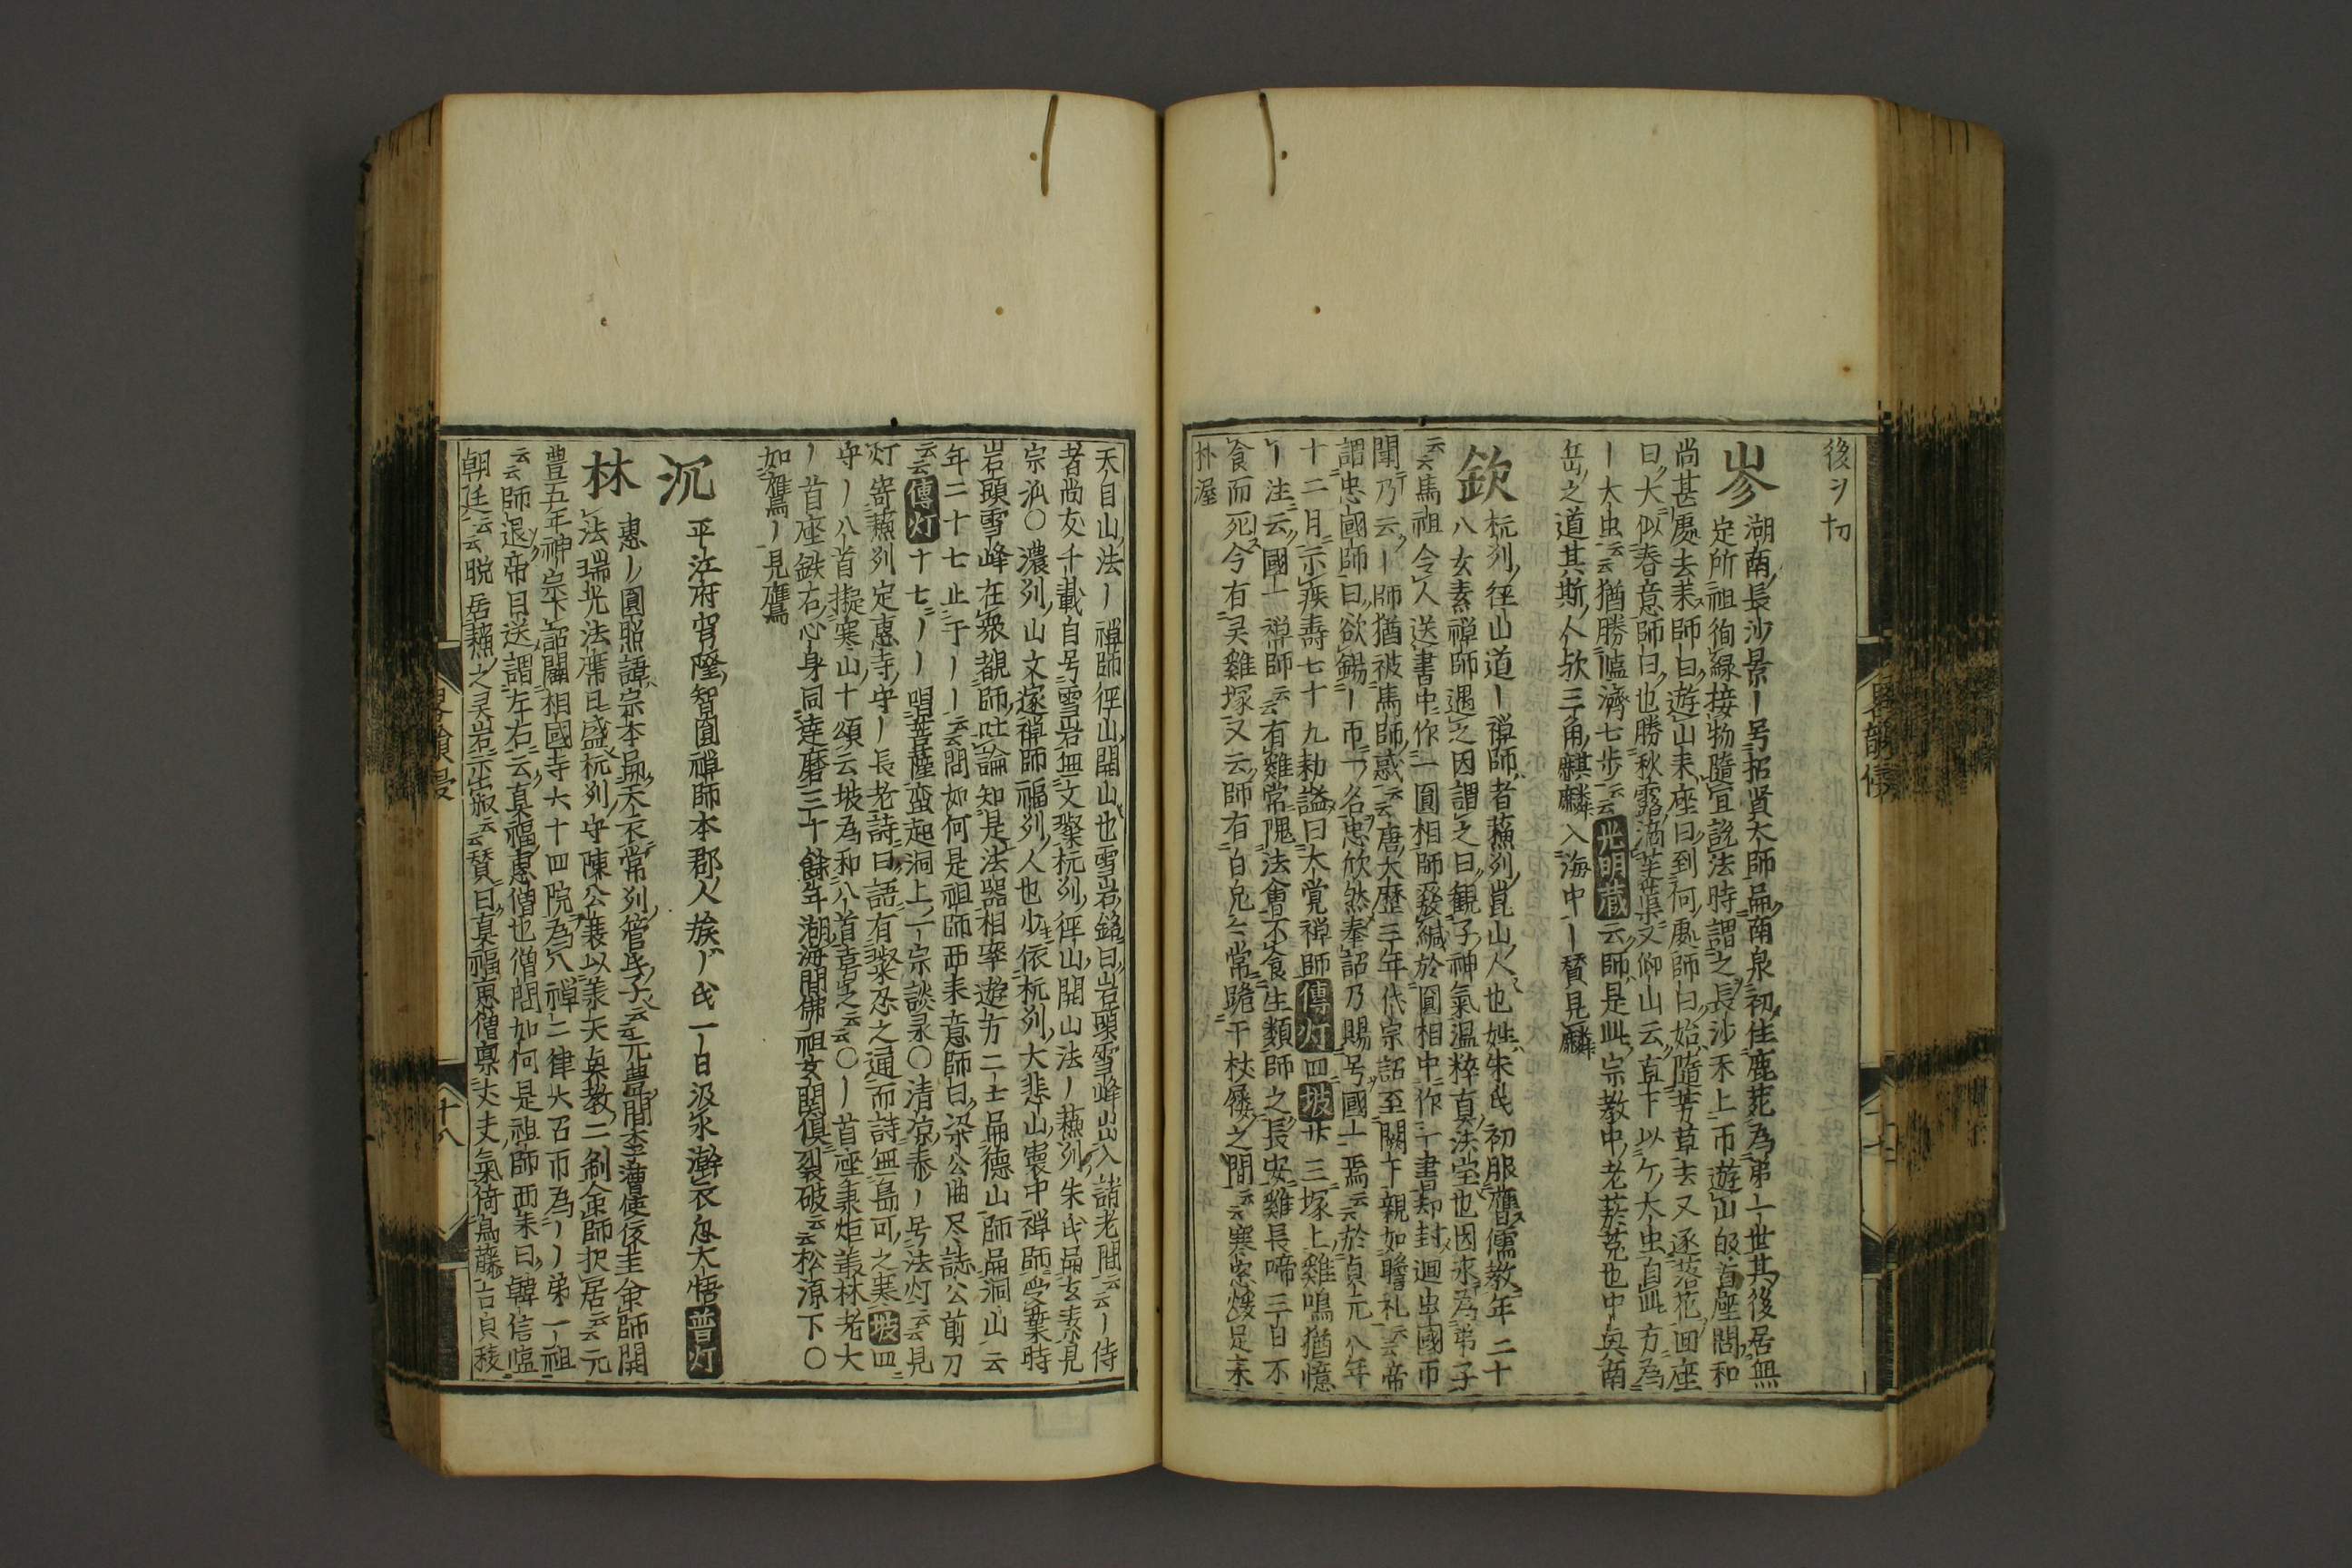 後ヲ切
岑
湖南長沙景ー号招賢大師扁南泉初住鹿苑為弟一世其後居無
定所祖徇緑接物隨宜說法時謂之長沙禾上一市遊山皈首座問和
尚甚處去来師曰遊山来座曰到何處師曰始隨芳草去又逐落花回座
曰大似春意師曰也勝秋露滴芙蕖又仰山云直下以ケ大虫自此方為
ー大虫云云猶勝臚濟七歩云云光明蔵云師是此宗教中老菸菟也中奥南
岳之道其斯人欤三角麒麟入海中ー賛見麟
欽
杭州径山道ー禅師者蘓州崑山人也姓朱氏初服膺儒教年二十
八玄素禅師遇之因謂之曰観子神氣温粹真法宝也因求為弟子
云云馬祖令人送書中作一圓相師發緘於圓相中作一書却封廻虫國币
聞乃云ー師猶被馬師惑云云唐大歴三年代宗詔至闕下親如瞻礼云云帝
謂忠國師曰欲錫ー币一名忠欣然奉詔乃賜号國一焉云云於貞元八年
十二月示疾壽七十九勅謚曰大覚禅師傳灯四坡廿三塚上雞鳴猶憶
ー注云國一禅師云云有雞常隗法會不食生類師之長安雞長啼三日不
食而死今有灵雞塚又云師有白兎々常跪于杖屨之間云云寒窓煖足来
朴渥
天目山法ー禅師徑山開山也雪岩銘曰岩頭雪峰岀入諸老間云云ー侍
者尚友千載自号雪岩無文璨杭州徑山開山法ー蘓州朱氏扁玄素見
宗派〇濃州山文遂禅師福州人也少依杭州大悲山寰中禅師受業時
岩頭雪峰在衆覩師吐論知是法器相率遊方二士扁德山師扁洞山云
年二十七止于ーー云云問如何是祖師西来意師曰梁公曲尺誌公剪刀
云云傳灯十七ーー唱菩薩蛮起洞上一宗談录〇清凉泰ー号法灯云云見
灯寄蘓州定惠寺守ー長老詩曰語有粲忍之通而詩無島可之寒坡四
守ー八首擬寒山十頌云坡為和八首喜之云云〇ー首座秉炬叢林老大
ー首座鉄右心身同達磨三十餘年湖海間佛祖玄関倶裂破云云松源下〇
如鷹ー見鷹
沉
平江府宵隆智圓禅師本郡人族ー氏一日汲水澣衣忽大悟普灯
林
惠ー圓照諱宗本扁天衣常州管氏子云云元豊間李漕使復圭命師開
法瑞光法席日盛杭州守陳公襄以羕天奥教二刹命師択居云云元
豊五年神宗下詔闢相國寺六十四院為八禅二律大召币為ーー弟一祖
云云師退帝目送謂左右云真福惠僧也僧問如何是祖師西来曰韓信臨
朝廷云云脱居蘓之灵岩示出叔云云賛曰真福恵僧稟丈夫氣倚烏藤